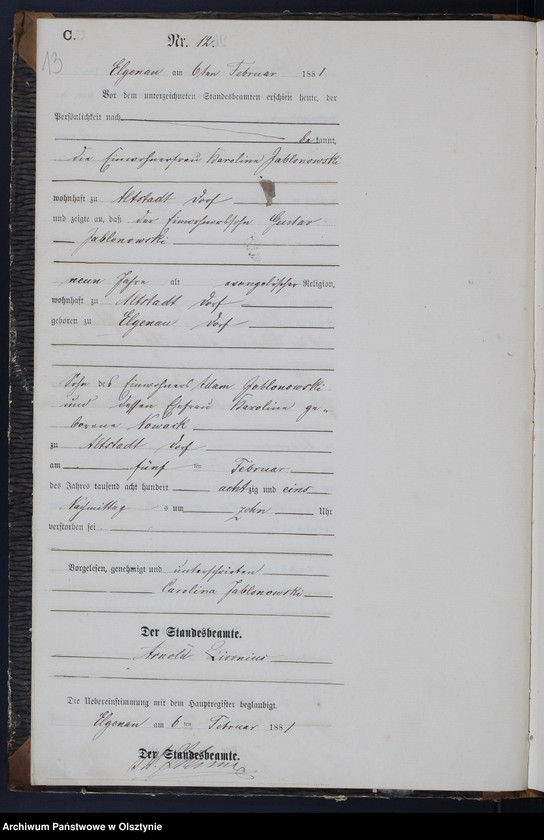 C.
13
Nr. 12.
Elgenau am 6ten Februar 1881
Vor dem unterzeichneten Standesbeamten erschien heute, der
Persönlichkeit nach
be kannt,
die Einwohnerfrau Karoline Jablonowski
wohnhaft zu Altstadt Dorf
und zeigte an, daß der Einwohnersohn Gustav
Jablonowski
neun Jahre alt evangelischer Religion,
wohnhaft zu Altstadt Dorf
geboren zu Elgenau Dorf
Sohn des Einwohners Adam Jablonowski
und dessen Ehefrau Karoline ge-
borene Nowack
zu Altstadt Dorf
am fünf ten Februar
des Jahres tausend acht hundert achtzig und eins
Nachmittag s um zehn Uhr
verstorben sei
Vorgelesen, genehmigt und unterschrieben
Carolina Jablonowski
Der Standesbeamte.
Arnold
Die Uebereinstimmung mit dem Hauptregister beglaubigt.
Elgenau am 6 ten Februar 1881
Der Standesbeamte.
Archiwum Państwowe w Olsztynie